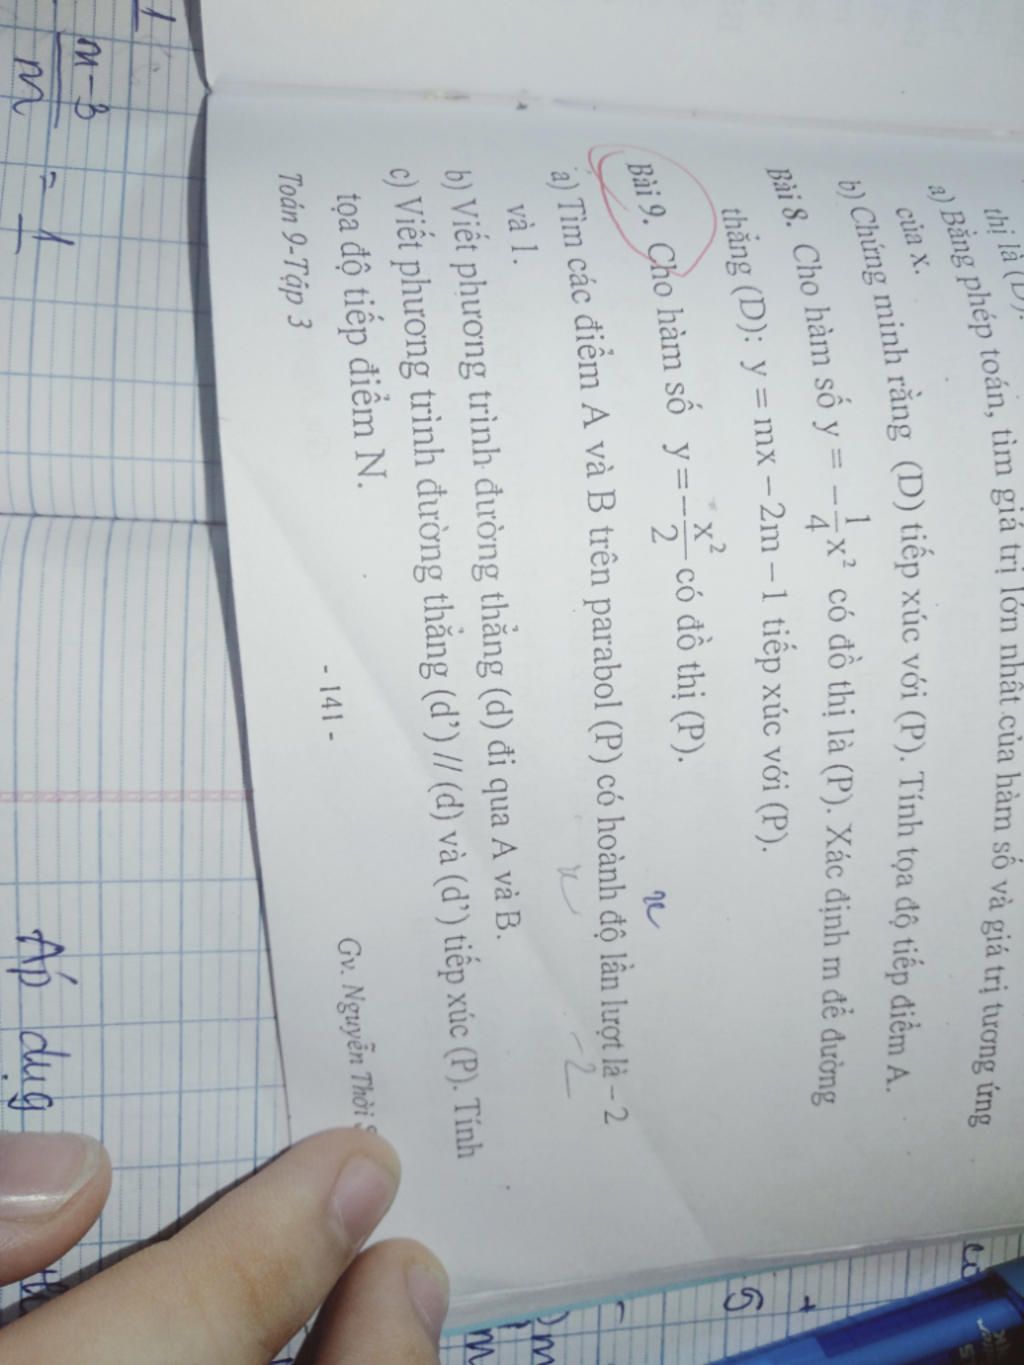 thị là (D):
a) Bằng phép toán, tìm giá trị lớn nhất của hàm số và giá trị tương ứng
của x.
b) Chứng minh rằng (D) tiếp xúc với (P). Tính tọa độ tiếp điểm A.
Bài 8. Cho hàm số y = -1/4 x² có đồ thị là (P). Xác định m để đường
thẳng (D): y = mx – 2m – 1 tiếp xúc với (P).
Bài 9. Cho hàm số y = -x²/2 có đồ thị (P).
x
a) Tìm các điểm A và B trên parabol (P) có hoành độ lần lượt là – 2
và 1.
x
-2
b) Viết phương trình đường thẳng (d) đi qua A và B.
c) Viết phương trình đường thẳng (d’) // (d) và (d’) tiếp xúc (P). Tính
tọa độ tiếp điểm N.
Toán 9-Tập 3
- 141 -
Gv. Nguyễn Thời
m-3
m
= 1
1
Áp dụng